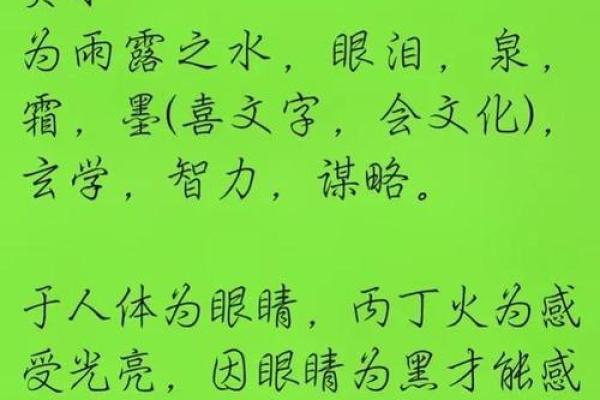 为雨露之水，眼泪，泉，
霜，墨(喜文字，会文化)，
玄学，智力，谋略。
于人体为眼睛，丙丁火为感
受光亮，因眼睛为黑才能感